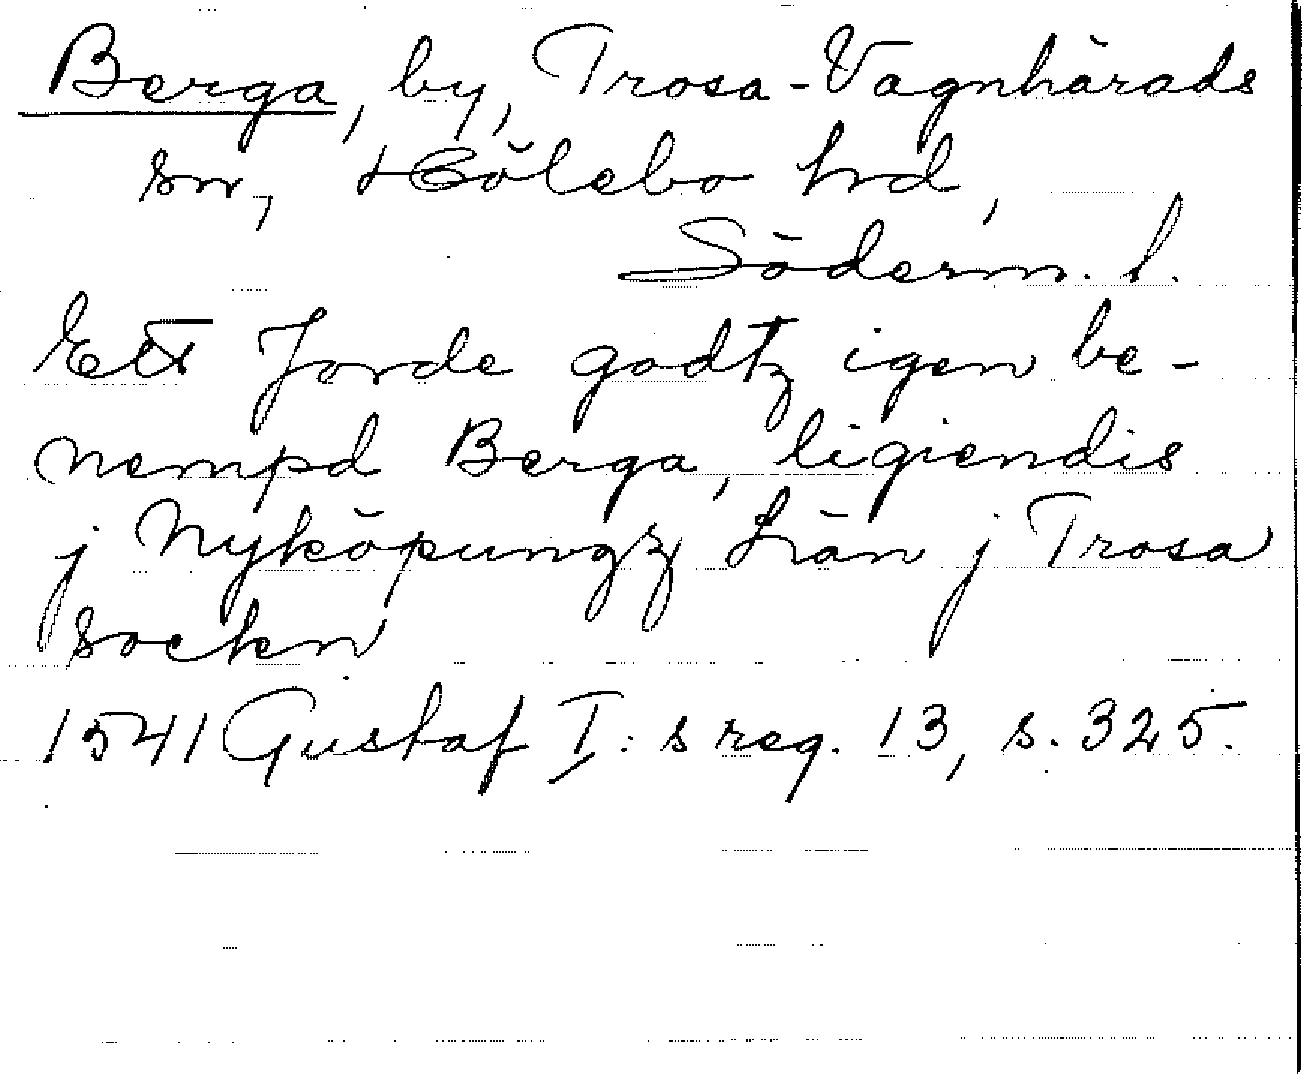 Berga, by, Trosa-Vagnhärads
sn, Hölebo hrd,
Söderm. l.
Ett Jorde godtz igen be-
nempd Berga, ligiendis
j Nyköpungz Län j Trosa
sockn
1541 Gustaf I:s reg. 13, s. 325.